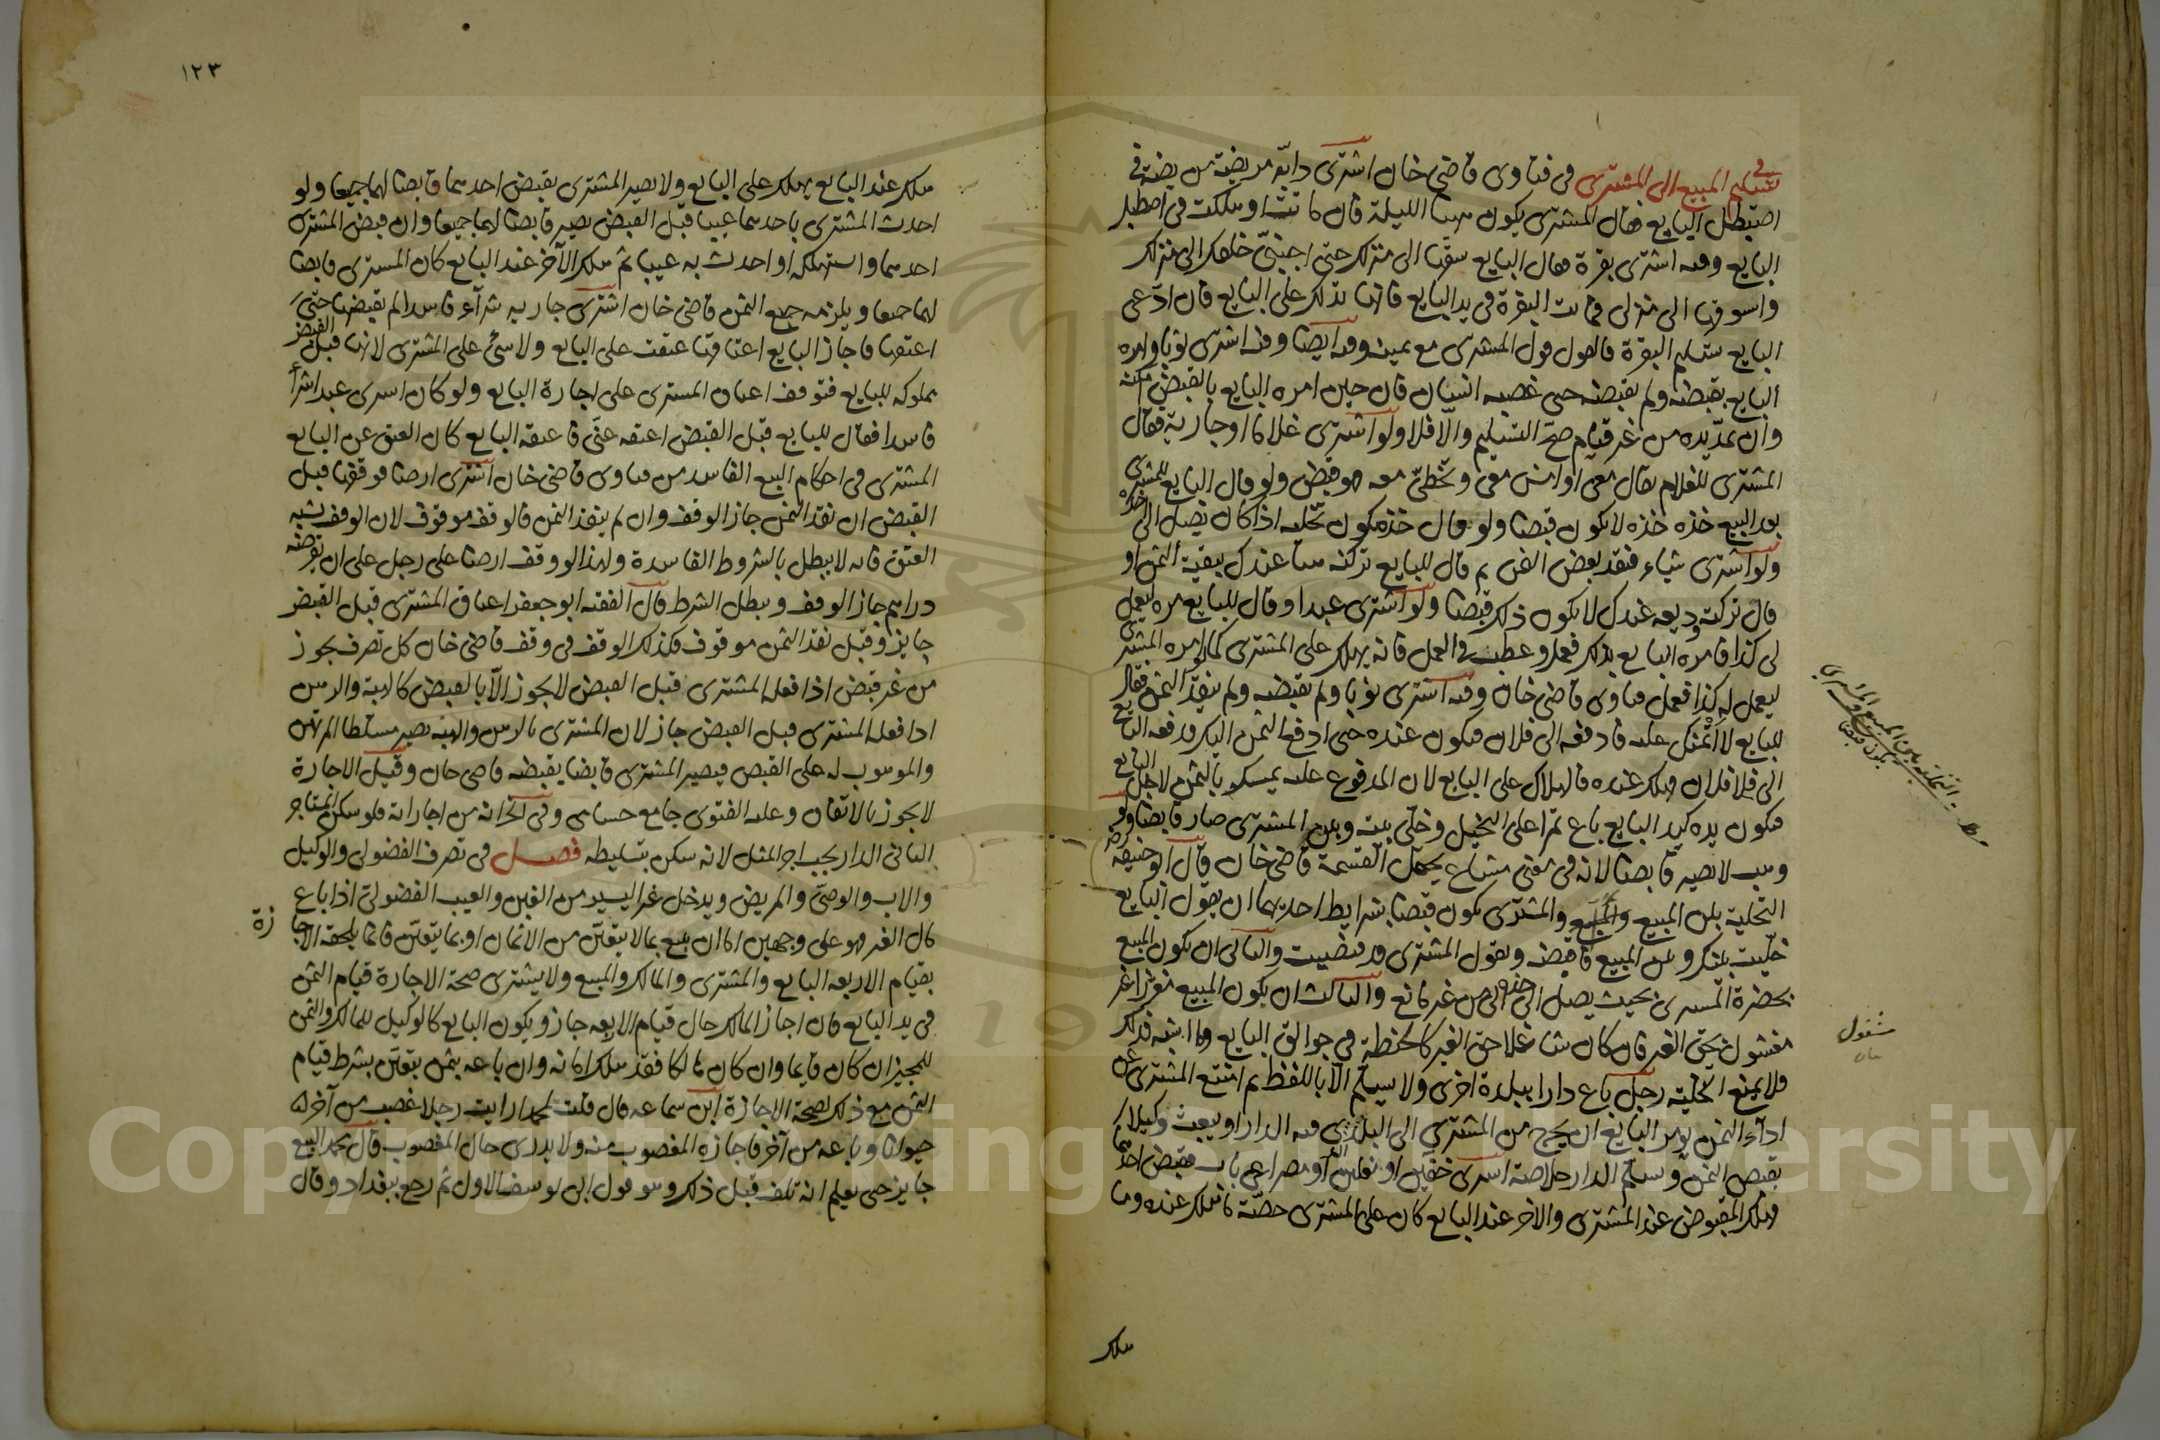 في تسليم المبيع الى المشترى في فتاوى قاضي خان اشترى دابة مريضة من يضة في
اصتبطل البايع فقال المشترى يكون هنا الليلة فان ماتت او هلكت في اصطبل
البايع وفيه اشترى بقرة فقال البايع سقها الى منزلك حتى اجئ خلفك الى منزلك
واسوقها الى منزلى فماتت البقرة في يد البايع فانها تهلك على البايع فان ادعى
البايع تسليم البقرة فالقول قول المشترى مع يمينه وفيه ايضا وفيه اشترى ثوبا وامره
البايع بقبضه ولم يقبضه حتى غصبه انسان فان حين امره البايع بالقبض امكنه
وان يمد يده من غير قيام صح التسليم والا فلا ولو اشترى غلاما او جارية فقال
المشترى للغلام تعال معى او امش معى وتخطى معه فهو قبض ولو قال البايع للمشترى
بعد البيع خذه خذه لا يكون قبضا ولو قال خذه يكون تخلية اذا كان يصل الى اخذه
ولو اشترى شياء فنقد بعض الثمن ثم قال للبايع تركته رهنا عندك ببقية الثمن او
قال تركته وديعة عندك لا يكون ذلك قبضا ولو اشترى عبدا وقال للبايع مره ليعمل
لى كذا فامره البايع بذلك ففعل وعطب في العمل فانه يهلك على المشترى كما لو امره المشترى
ليعمل له كذا فعمل فتاوى قاضي خان وفيه اشترى ثوبا ولم يقبضه ولم ينقد الثمن فقال
للبايع لا ائتمنك عليه فادفعه الى فلان فيكون عنده حتى ادفع الثمن اليك فدفعه البايع
الى فلان فهلك عنده فالهلاك على البايع لان المدفوع عليه يمسكه بالثمن لاجل البايع
فيكون يده كيد البايع باع تمرا على النخيل وخلى بينه وبين المشترى صار قابضا ولو
وهب لا يصير قابضا لانه في معنى مشاع يحتمل القسمة قاضي خان قال ابو حنيفة رحمه
التخلية بين المبيع والمشترى يكون قبضا بشرايط احديها ان يقول البايع
خليت بينك وبين المبيع فاقبضه ويقول المشترى قد قبضت والثانى ان يكون المبيع
بحضرة المشترى بحيث يصل الى اخذه من غير مانع والثالث ان يكون المبيع مفرزا غير
مشغول بحق الغير فان كان شاغلا حق الغير كالحنطة في جوالق البايع وما اشبه ذلك
فلا يمنع التخلية رجل باع دارا ببلدة اخرى ولا يسلم الا باللفظ ثم امتنع المشترى عن
اداء الثمن يؤمر البايع ان يخرج من المشترى الى البلد الذي فيه الدار او يبعث وكيلا
يقبض الثمن ويسلم الدار خلاصة اشترى خفين او نعلين او مصراعى باب فقبض احدهما
فهلك المقبوض عند المشترى والاخر عند البايع كان على المشترى حصة ما هلك عنده وما
هلك
التخلية بين المبيع
يكون قبضا
مشغول
هلك عند البايع يهلك على البايع ولا يصير المشترى بقبض احدهما قابضا لهما جميعا ولو
احدث المشترى باحدهما عيبا قبل القبض يصير قابضا لهما جميعا وان قبض المشترى
احدهما واستهلكه او احدث به عيبا ثم هلك الآخر عند البايع كان المشترى قابضا
لهما جميعا ويلزمه جميع الثمن قاضي خان اشترى جارية شرآء فاسدا لم يقبضها حتى
اعتقها فاجاز البايع اعتاقها عتقت على البايع ولا شئ على المشترى لانها قبل القبض
مملوكة للبايع فتوقف اعتاق المشترى على اجازة البايع ولو كان اشترى عبدا شرآء
فاسدا فقال للبايع قبل القبض اعتقه عنى فاعتقه البايع كان العتق عن البايع
المشترى في احكام البيع الفاسد من فتاوى قاضي خان اشترى ارضا فوقفها قبل
القبض ان نقد الثمن جاز الوقف وان لم ينقد الثمن فالوقف موقوف لان الوقف يشبه
العتق فانه لا يبطل بالشروط الفاسدة ولهذا لو وقف ارضا على رجل على ان يقرضه
دراهم جاز الوقف ويبطل الشرط قال الفقيه ابو جعفر اعتاق المشترى قبل القبض
جايز وقبل نقد الثمن موقوف فكذلك الوقف في وقف قاضي خان كل تصرف يجوز
من غير قبض اذا فعله المشترى قبل القبض لا يجوز الا بالقبض كالهبة والرهن
اذا فعله المشترى قبل القبض جاز لان المشترى بالرهن والهبة يصير مسلطا المرتهن
والموهوب له على القبض فيصير المشترى قابضا بقبضه قاضي خان وقيل الاجارة
لا يجوز بالاتفاق وعليه الفتوى جامع حسامى وفي الخزانة من اجاراته فلو سكن المستاجر
الثانى الدار يجب اجر المثل لانه سكن بتسليطه فصل في تصرف الفضولى والوكيل
والاب والوصى والمريض ويدخل غير اليسير من الغبن والعيب الفضولى اذا باع
مال الغير فهو على وجهين اما ان يبيع بما لا يتعين من الاثمان او بما يتعين فانما يلحقه الاجازة
بقيام الاربعة البايع والمشترى والمالك والمبيع ولا يشترى صحة الاجازة قيام الثمن
في يد البايع فان اجاز المالك حال قيام الاربعة جاز ويكون البايع كالوكيل للمالك والثمن
للمجيز ان كان قايما وان كان هالكا فقد هلك امانة وان باعه بثمن يتعين بشرط قيام
الثمن مع ذلك لصحة الاجازة ابن سماعة قال قلت لمحمد ارايت رجلا غصب من آخر
حيوانا وباعه من آخر فاجازه المغصوب منه ولا يدرى حال المغصوب قال محمد البيع
جايز حتى يعلم انه تلف قبل ذلك وهو قول ابى يوسف الاول ثم رجع ببغداد وقال
١٢٣
Copyright © King Saud University
1957